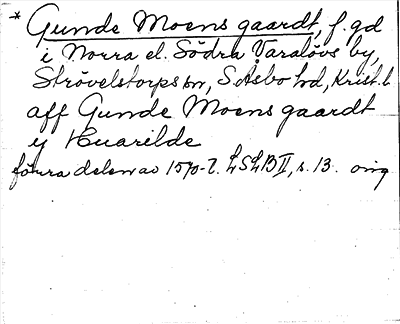 * Gunde Moens gaardt, f. gd
i Norra el. Södra Varalövs by,
Strövelstorps sn, S. Åsbo hd, Krist. l.
aff Gunde Moens gaardt
y Huarilde
förra delen av 1570-t. LSLB II, s. 13. orig